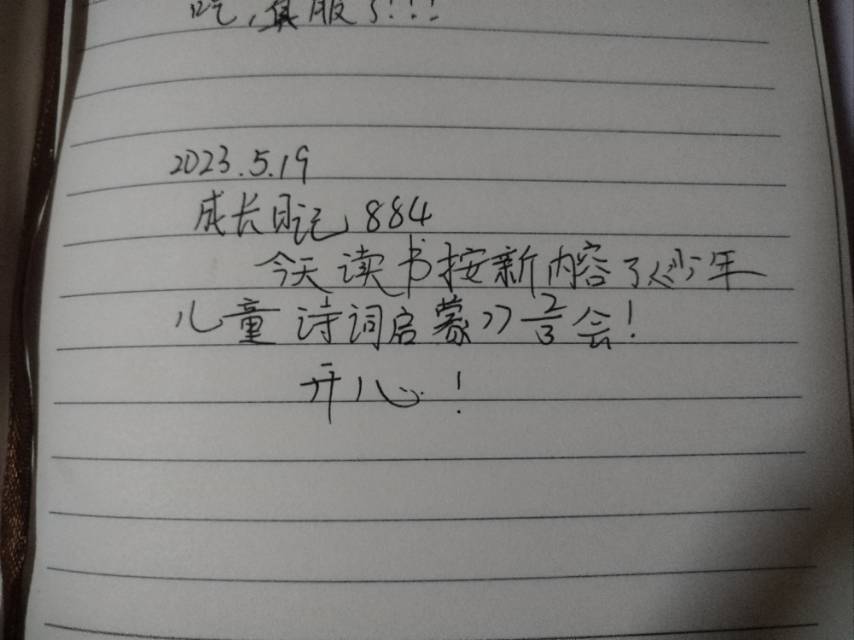 吃,真服了!!!
2023.5.19
成长日记 884
今天读书按新内容了《少年
儿童诗词启蒙》2/3会!
开心!